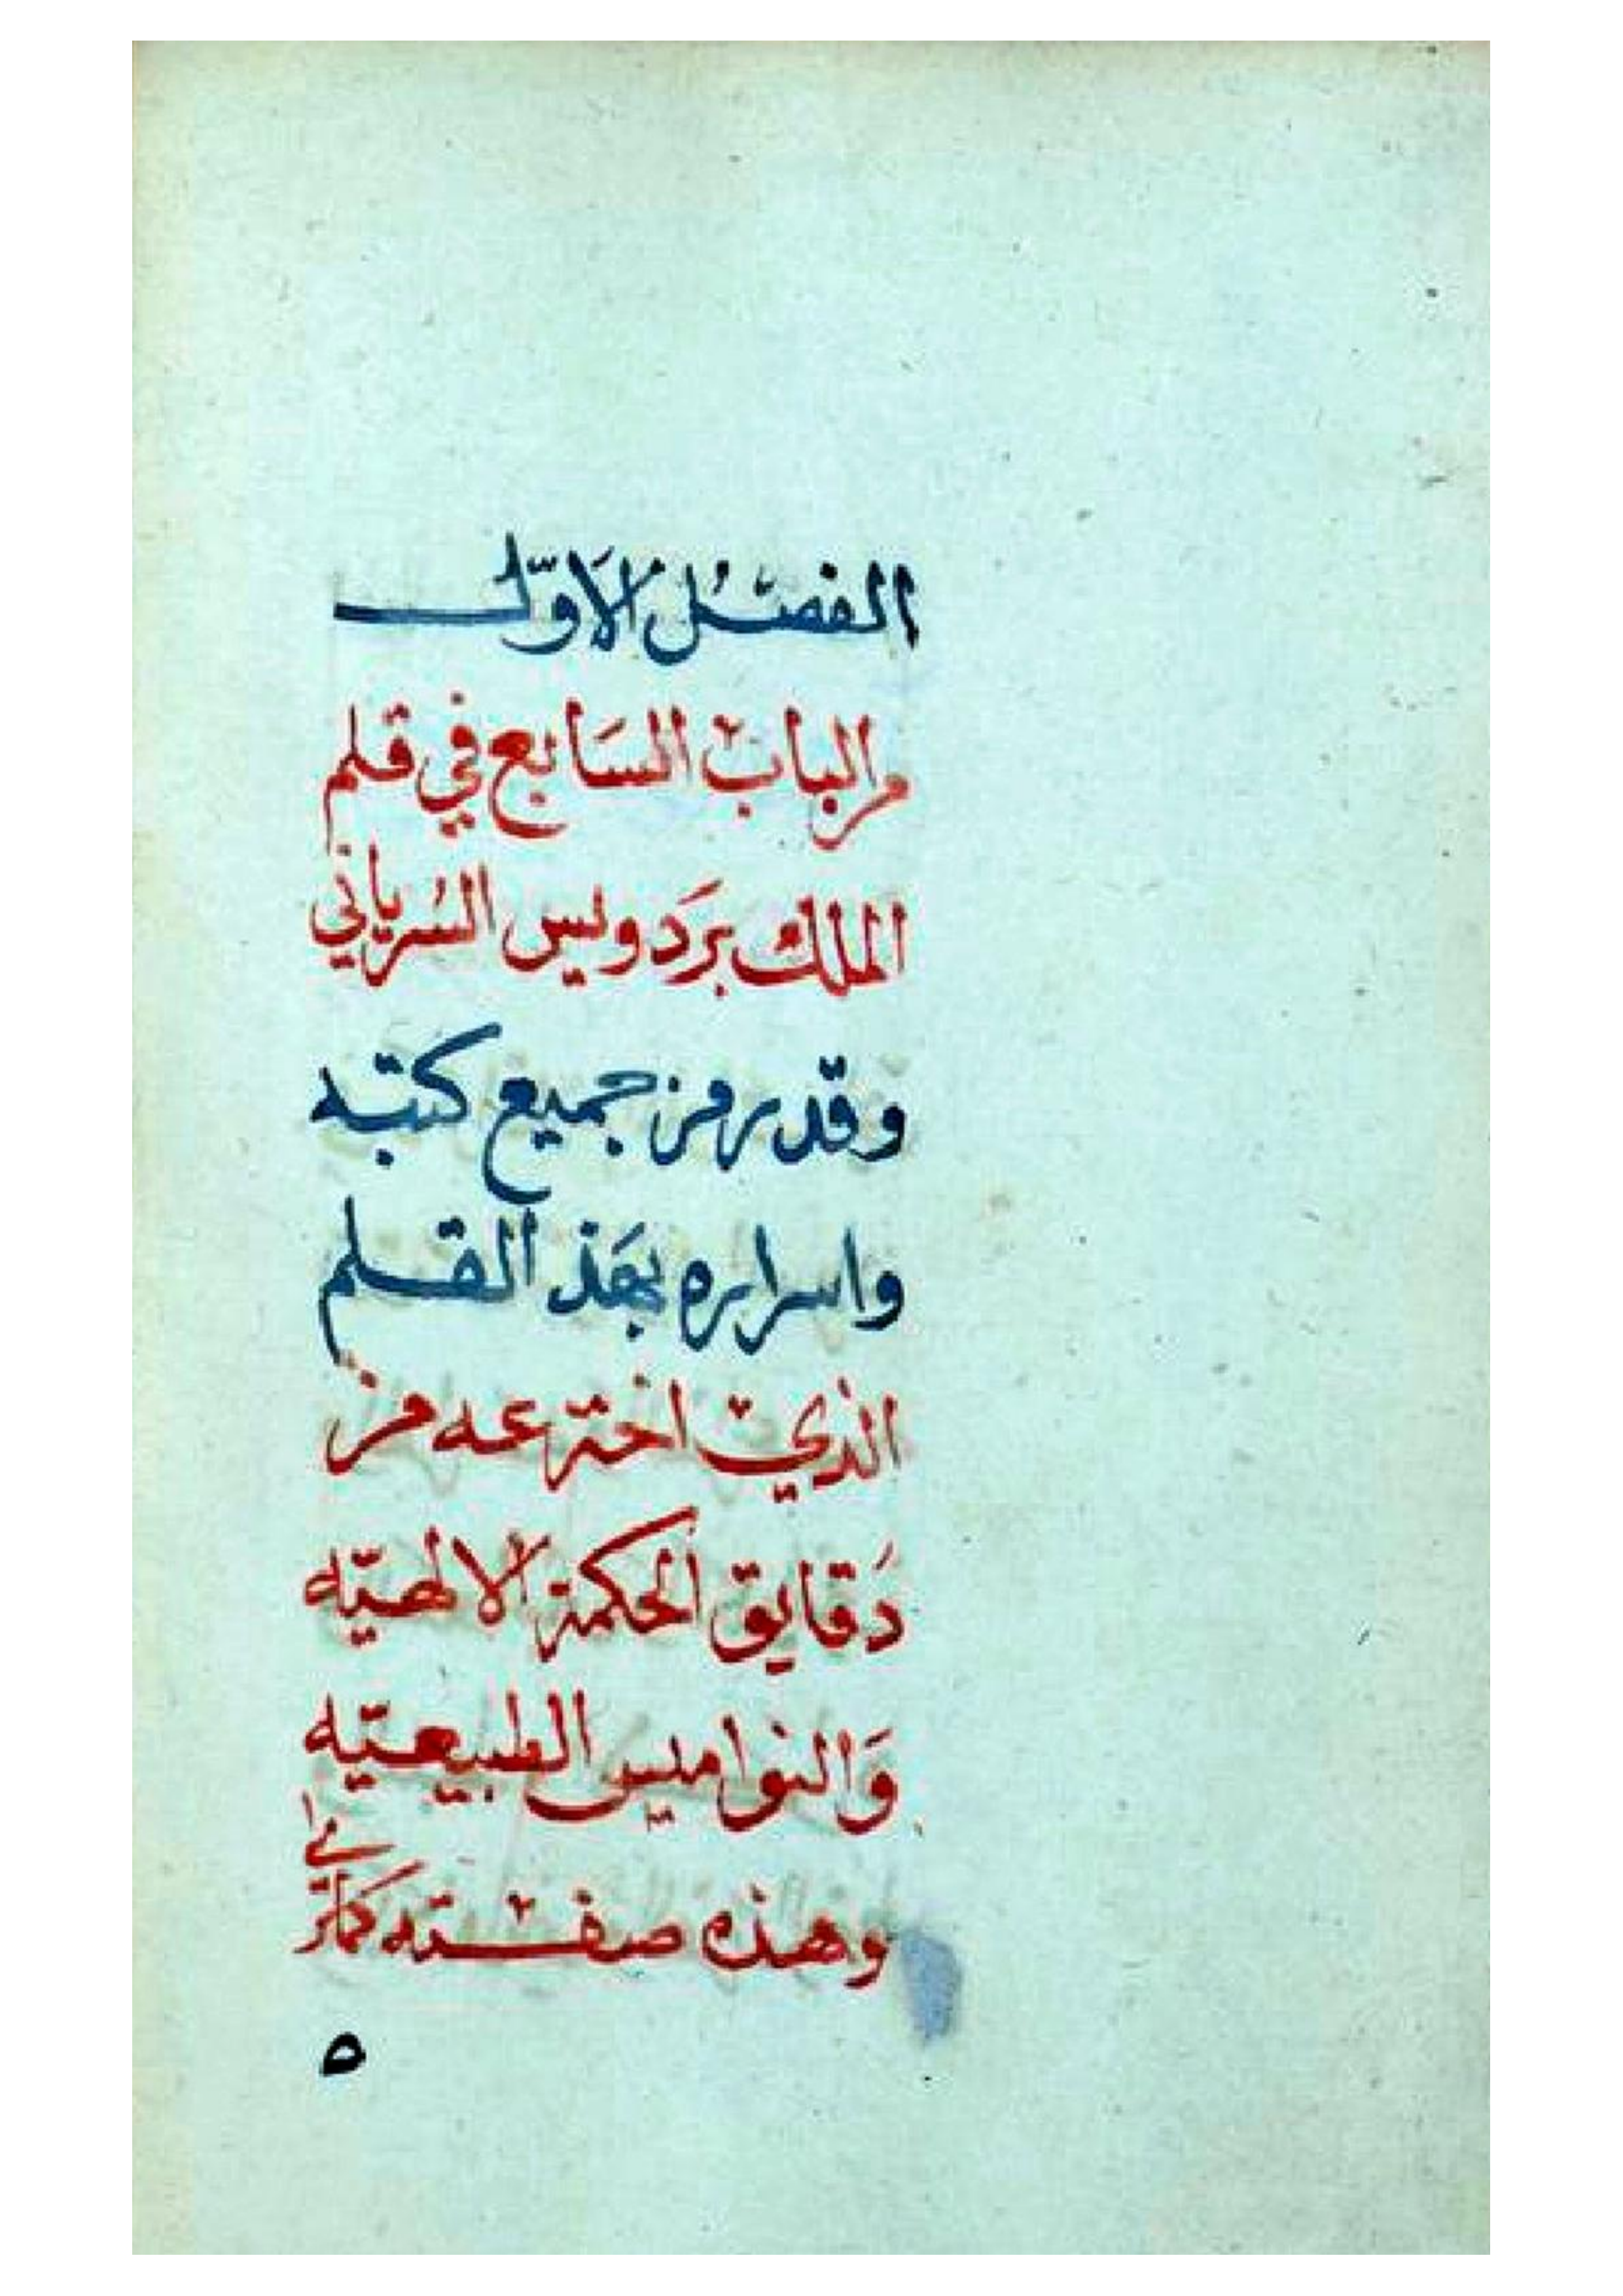 الفصل الاوّل
من الباب السَابع في قلم
الملك برَدويس السُرياني
وقد رمز جميع كتبه
واسراره بهَذ القلم
الذي اخترعه من
دَقايق الحكمة الالهيّه
وَالنواميس الطبيعيّه
وهذه صفته كماترى
٥